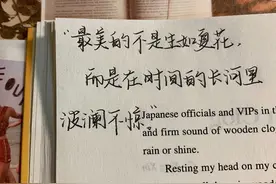 “最美的不是生如夏花,
而是在时间的长河里
波澜不惊”
Japanese officials and VIPs in th
and firm sound of wooden clo
rain or shine.
Resting my head on my c